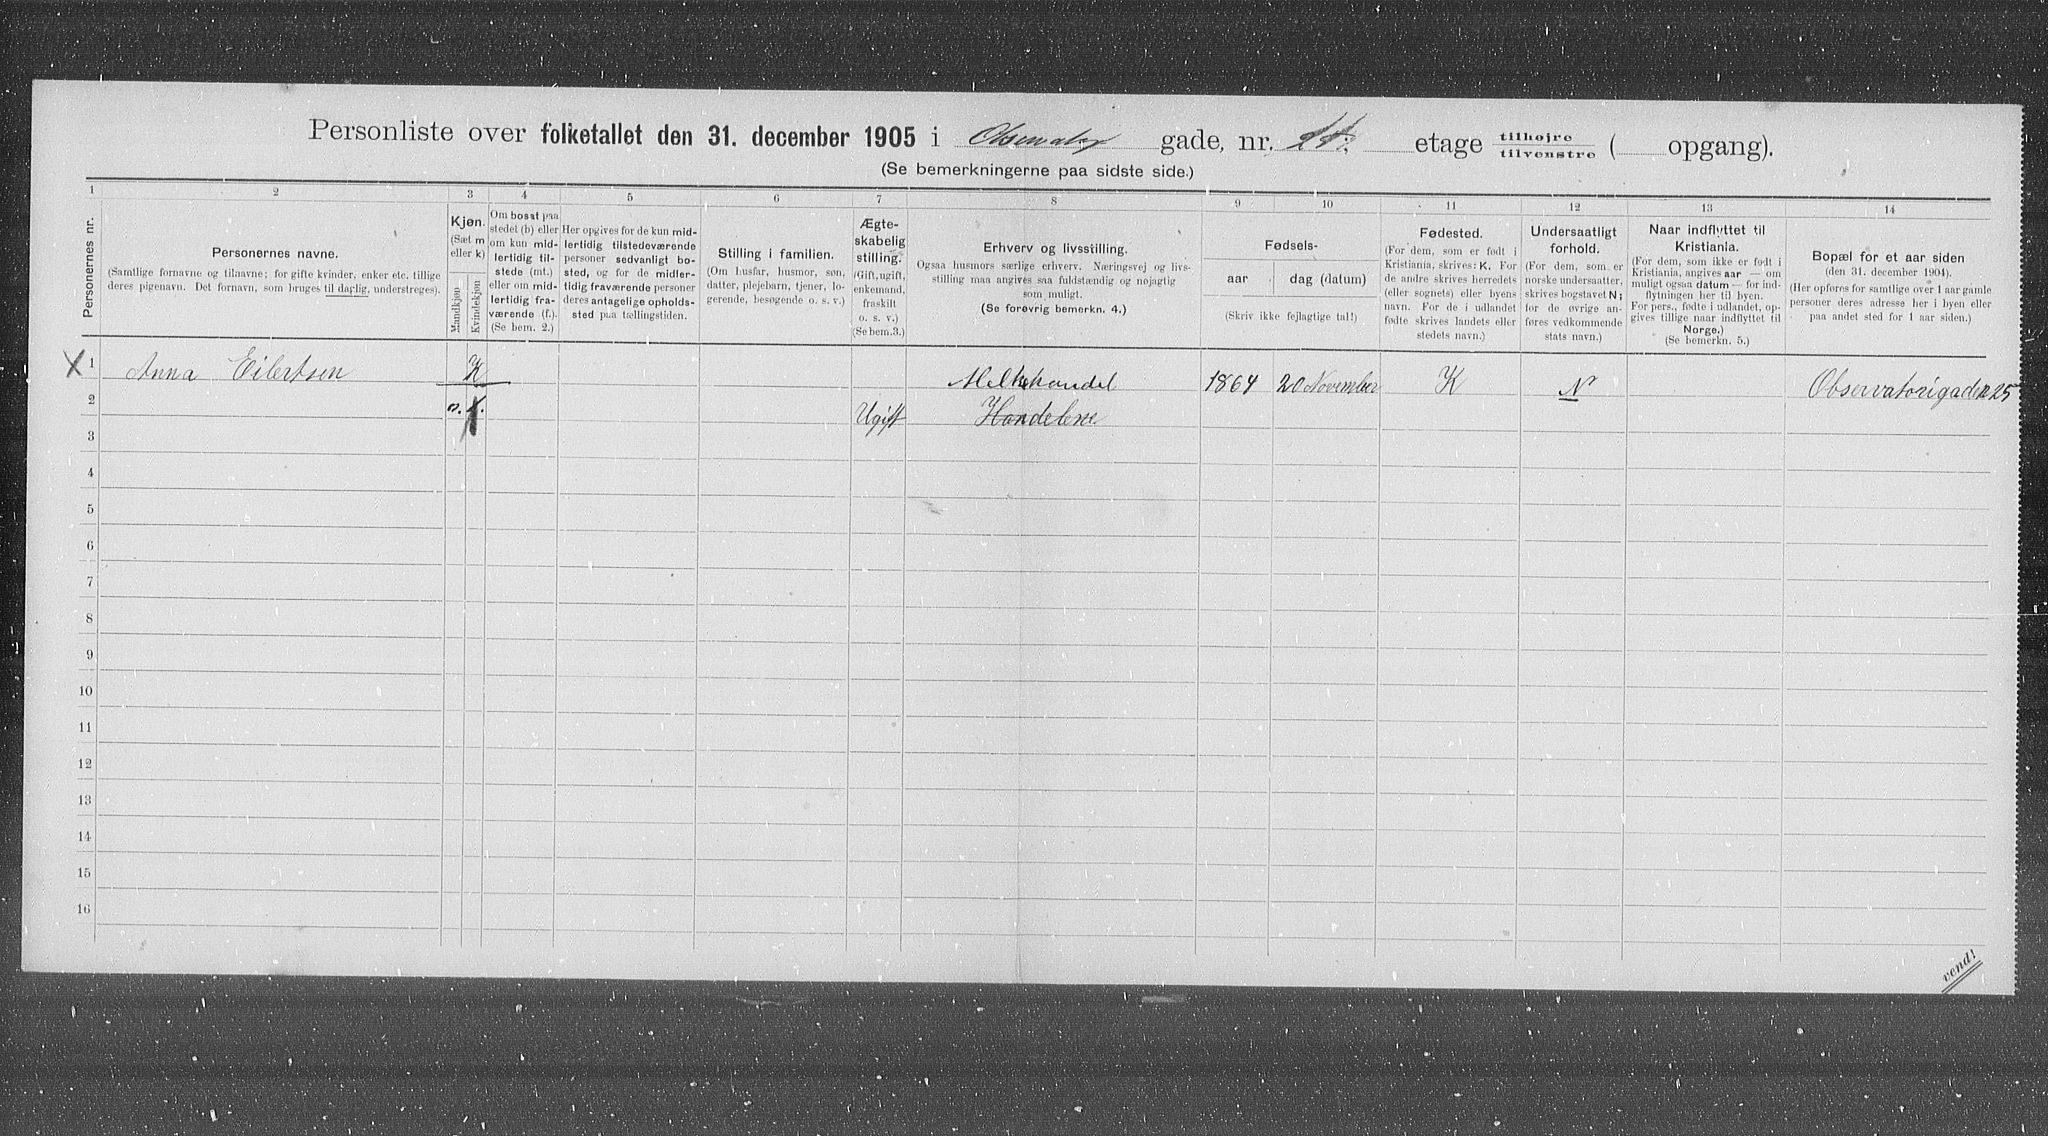 Personliste over folketallet den 31. december 1905 i Observator gade, nr. etage tilhøjre / tilvenstre ( opgang).
(Se bemerkningerne paa sidste side.)
1 2 3 4 5 6 7 8 9 10 11 12 13 14
Personernes nr.
Personernes navne.
(Samtlige fornavne og tilnavne; for gifte kvinder, enker etc. tillige
deres pigenavn. Det fornavn, som bruges til daglig, understreges).
Kjøn.
(Sæt m
eller k)
Mandkjøn
Kvindekjøn
Om bosat paa
stedet (b) eller
om kun mid-
lertidig til-
stede (mt.)
eller om mid-
lertidig fra-
værende (f.).
(Se bem. 2.)
Her opgives for de kun mid-
lertidig tilstedeværende
personer sedvanlig bo-
sted, og for de midler-
tidig fraværende personer
deres antagelige opholds-
sted paa tællingstiden.
Stilling i familien.
(Om husfar, husmor, søn,
datter, plejebarn, tjener, lo-
gerende, besøgende o. s. v.)
Ægte-
skabelig
stilling.
(Gift, ugift,
enkemand,
fraskilt
o. s. v.)
(Se bem. 3.)
Erhverv og livsstilling.
Ogsaa husmors særlige erhverv. Næringsvej og livs-
stilling maa angives saa fuldstændig og nøjagtig
som muligt.
(Se forøvrig bemerkn. 4.)
Fødsels-
aar dag (datum)
(Skriv ikke fejlagtige tal!)
Fødested.
(For dem, som er født i
Kristiania, skrives: K. For
de andre skrives herredets
(eller sognets) eller byens
navn. For de i udlandet
fødte skrives landets eller
stedets navn.)
Undersaatligt
forhold.
(For dem, som er
norske undersaatter,
skrives bogstavet N;
for de øvrige an-
føres vedkommende
stats navn.)
Naar indflyttet til
Kristiania.
(For dem, som ikke er født i
Kristiania, angives aar — om
muligt ogsaa datum — for ind-
flytningen her til byen.
For pers., fødte i udlandet, op-
gives tillige naar indflyttet til
Norge.)
(Se bemerkn. 5.)
Bopæl for et aar siden
(den 31. december 1904).
(Her opføres for samtlige over 1 aar gamle
personer deres adresse her i byen eller
paa andet sted for 1 aar siden.)
X 1 Anna Eilertsen K Melkehandel 1864 20 November K N Observatorigaden 25
2 Ugift Handelerse
3
4
5
6
7
8
9
10
11
12
13
14
15
16
vend!